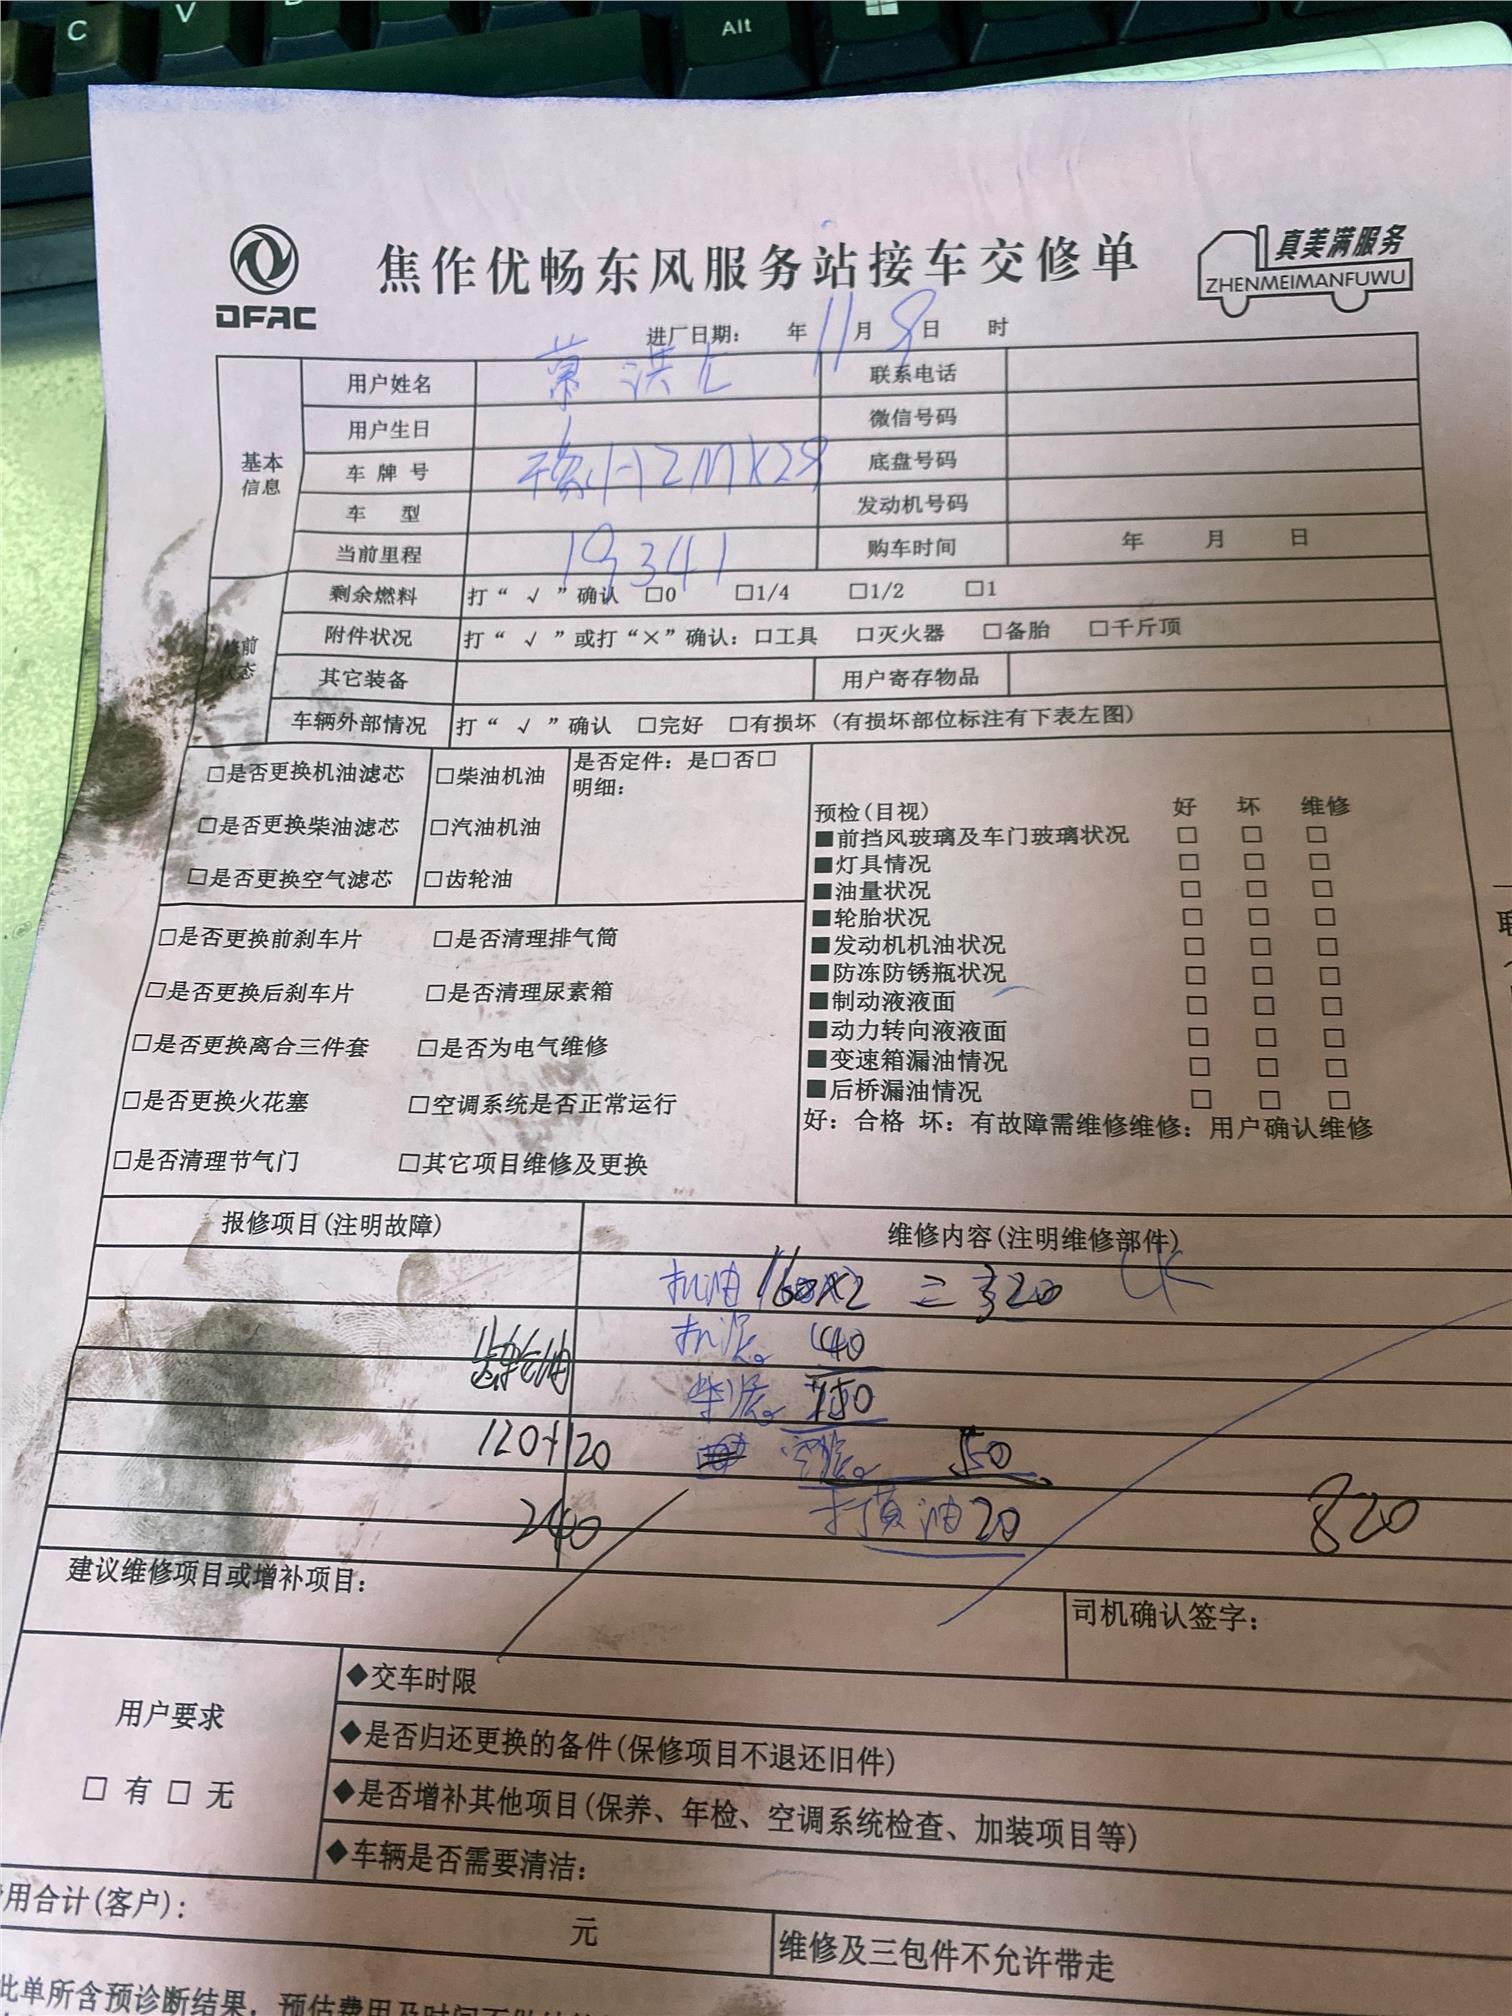 C V Alt
DFAC
焦作优畅东风服务站接车交修单
真美满服务
ZHENMEIMANFUWU
进厂日期： 年 11 月 9 日 时
基本信息
用户姓名 联系电话
用户生日 微信号码
车牌号 豫HZMX28 底盘号码
车 型 发动机号码
当前里程 19341 购车时间 年 月 日
修前状态
剩余燃料 打“ √ ”确认 □0 □1/4 □1/2 □1
附件状况 打“ √ ”或打“×”确认：□工具 □灭火器 □备胎 □千斤顶
其它装备 用户寄存物品
车辆外部情况 打“ √ ”确认 □完好 □有损坏（有损坏部位标注有下表左图）
□是否更换机油滤芯 □柴油机油 是否定件：是□否□
明细：
□是否更换柴油滤芯 □汽油机油
□是否更换空气滤芯 □齿轮油
□是否更换前刹车片 □是否清理排气筒
□是否更换后刹车片 □是否清理尿素箱
□是否更换离合三件套 □是否为电气维修
□是否更换火花塞 □空调系统是否正常运行
□是否清理节气门 □其它项目维修及更换
预检(目视) 好 坏 维修
■前挡风玻璃及车门玻璃状况 □ □ □
■灯具情况 □ □ □
■油量状况 □ □ □
■轮胎状况 □ □ □
■发动机机油状况 □ □ □
■防冻防锈瓶状况 □ □ □
■制动液液面 □ □ □
■动力转向液液面 □ □ □
■变速箱漏油情况 □ □ □
■后桥漏油情况 □ □ □
好：合格 坏：有故障需维修维修：用户确认维修
报修项目(注明故障) 维修内容(注明维修部件)
机油 160×2 = 320
机滤 40
齿轮油
柴滤 150
120+120 空滤 50
240 打黄油 20 820
建议维修项目或增补项目：
司机确认签字：
用户要求
□ 有 □ 无
◆交车时限
◆是否归还更换的备件(保修项目不退还旧件)
◆是否增补其他项目(保养、年检、空调系统检查、加装项目等)
◆车辆是否需要清洁：
用合计(客户)： 元 维修及三包件不允许带走
此单所含预诊断结果，预估费用及时间